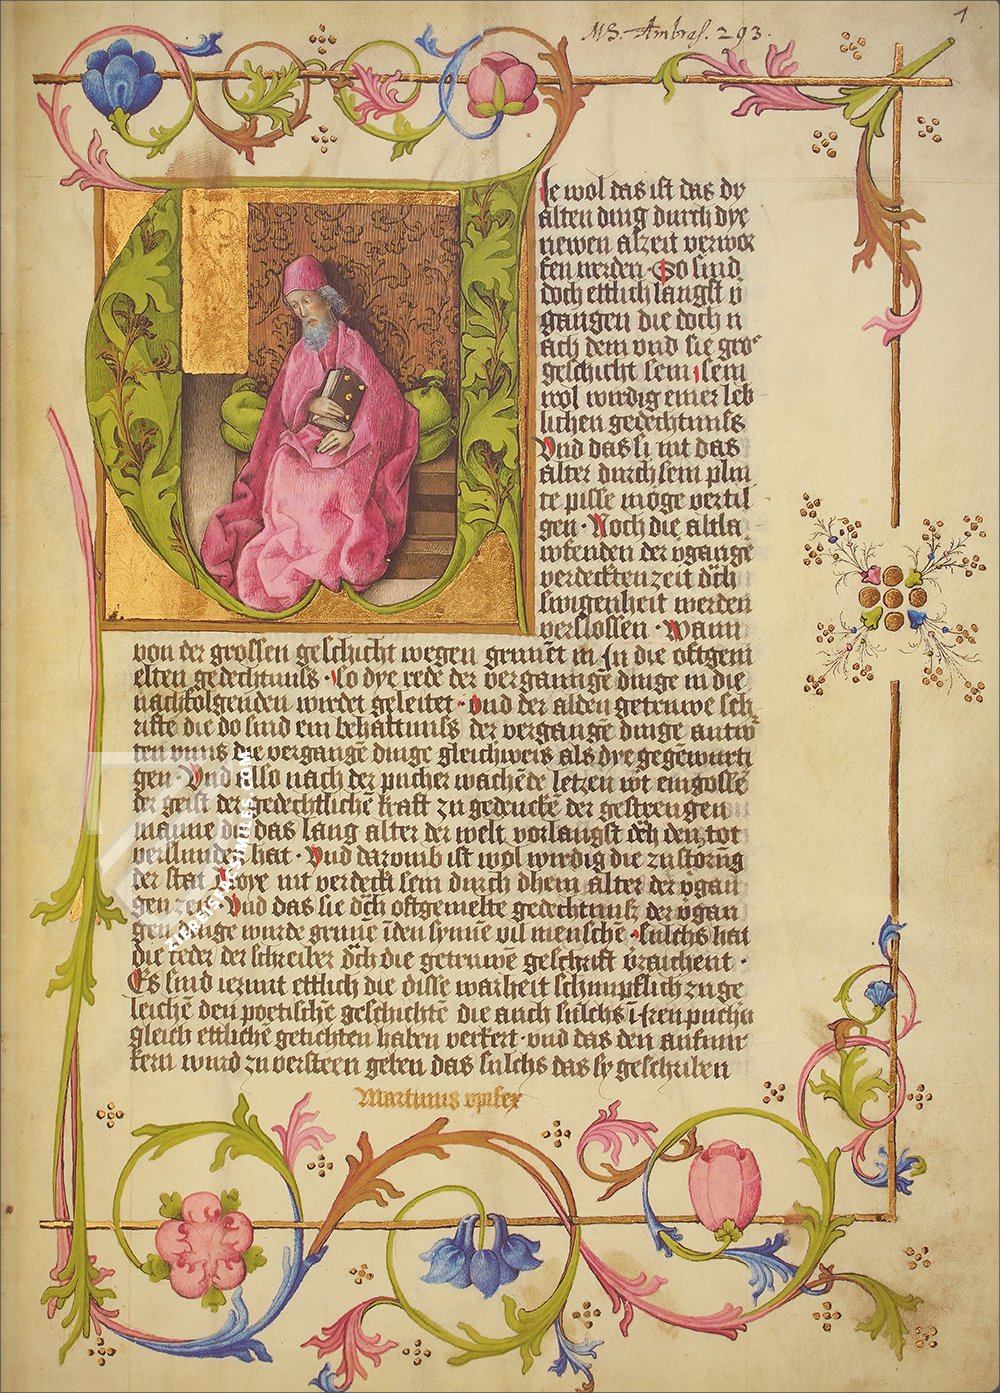 MS. Ambras. 293.
1
Ie wol das ist das dy
alten ding durch dye
newen alzeit verwor
fen werden · So sind
doch ettlich langst v
gangen die doch n
ach dem vnd sie gros
geschicht sein · sein
wol wirdig einer leb
lichen gedechtnuss
Vnd das si mt das
alter durch sein plin
te pisse moge vertil
gen · Noch die abla
wfenden der vgange
verdeckten zeit dch
swigenheit werden
verslossen · Wann
von der grossen geschicht wegen genuet in In die oftgem
elten gedechtnuss · So dye rede der vergannge dinge in die
nachfolgenden wirdet geleitet · vnd der alden getruwe sch
rifte die do sind ein behaltnuss der vergange dinge antw
ten vnns die vergange dinge gleichweis als dye gegewurti
gen · Vnd also nach der pucher wachede letzen wt eingosse
der geist der gedechtliche kraft zu gedrucke der gestrengen
manne die das lang alter der welt vorlangst dch den tot
verslunden hat · Vnd daromb ist wol wirdig die zustorung
der stat Troye nit verdeckt sein durch dhein alter der vgan
gen zeit · Vnd das sie dch oftgemelte gedechtnuss der vgan
gen dinge wurde genne iden synne vil mensche · sulchs hat
die feder der schreiber dch die getruwe geschrift vraichent ·
Es sind iezunt ettlich die disse warheit schimpflich zu ge
leiche den poetische geschichte die auch sulchs i iren puchn
gleich ettliche getichten haben verkert · vnd das den aufmir
kern wurd zu versteen geben das sulchs das sy geschriben
Martinus opifex
ZIEREISFACSIMILES.COM